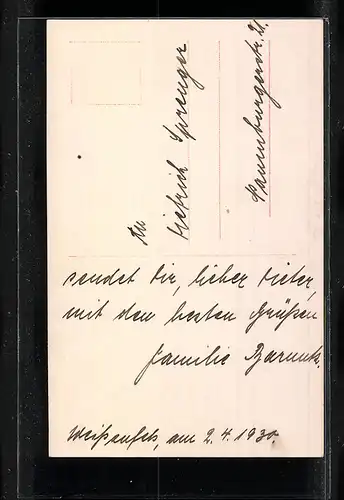 An
Dietrich Sprenger
Naumburgerstr. 21.
sendet Dir, lieber Dieter,
mit den besten Grüßen
Familie
Weißenfels, am 2.4.1930.